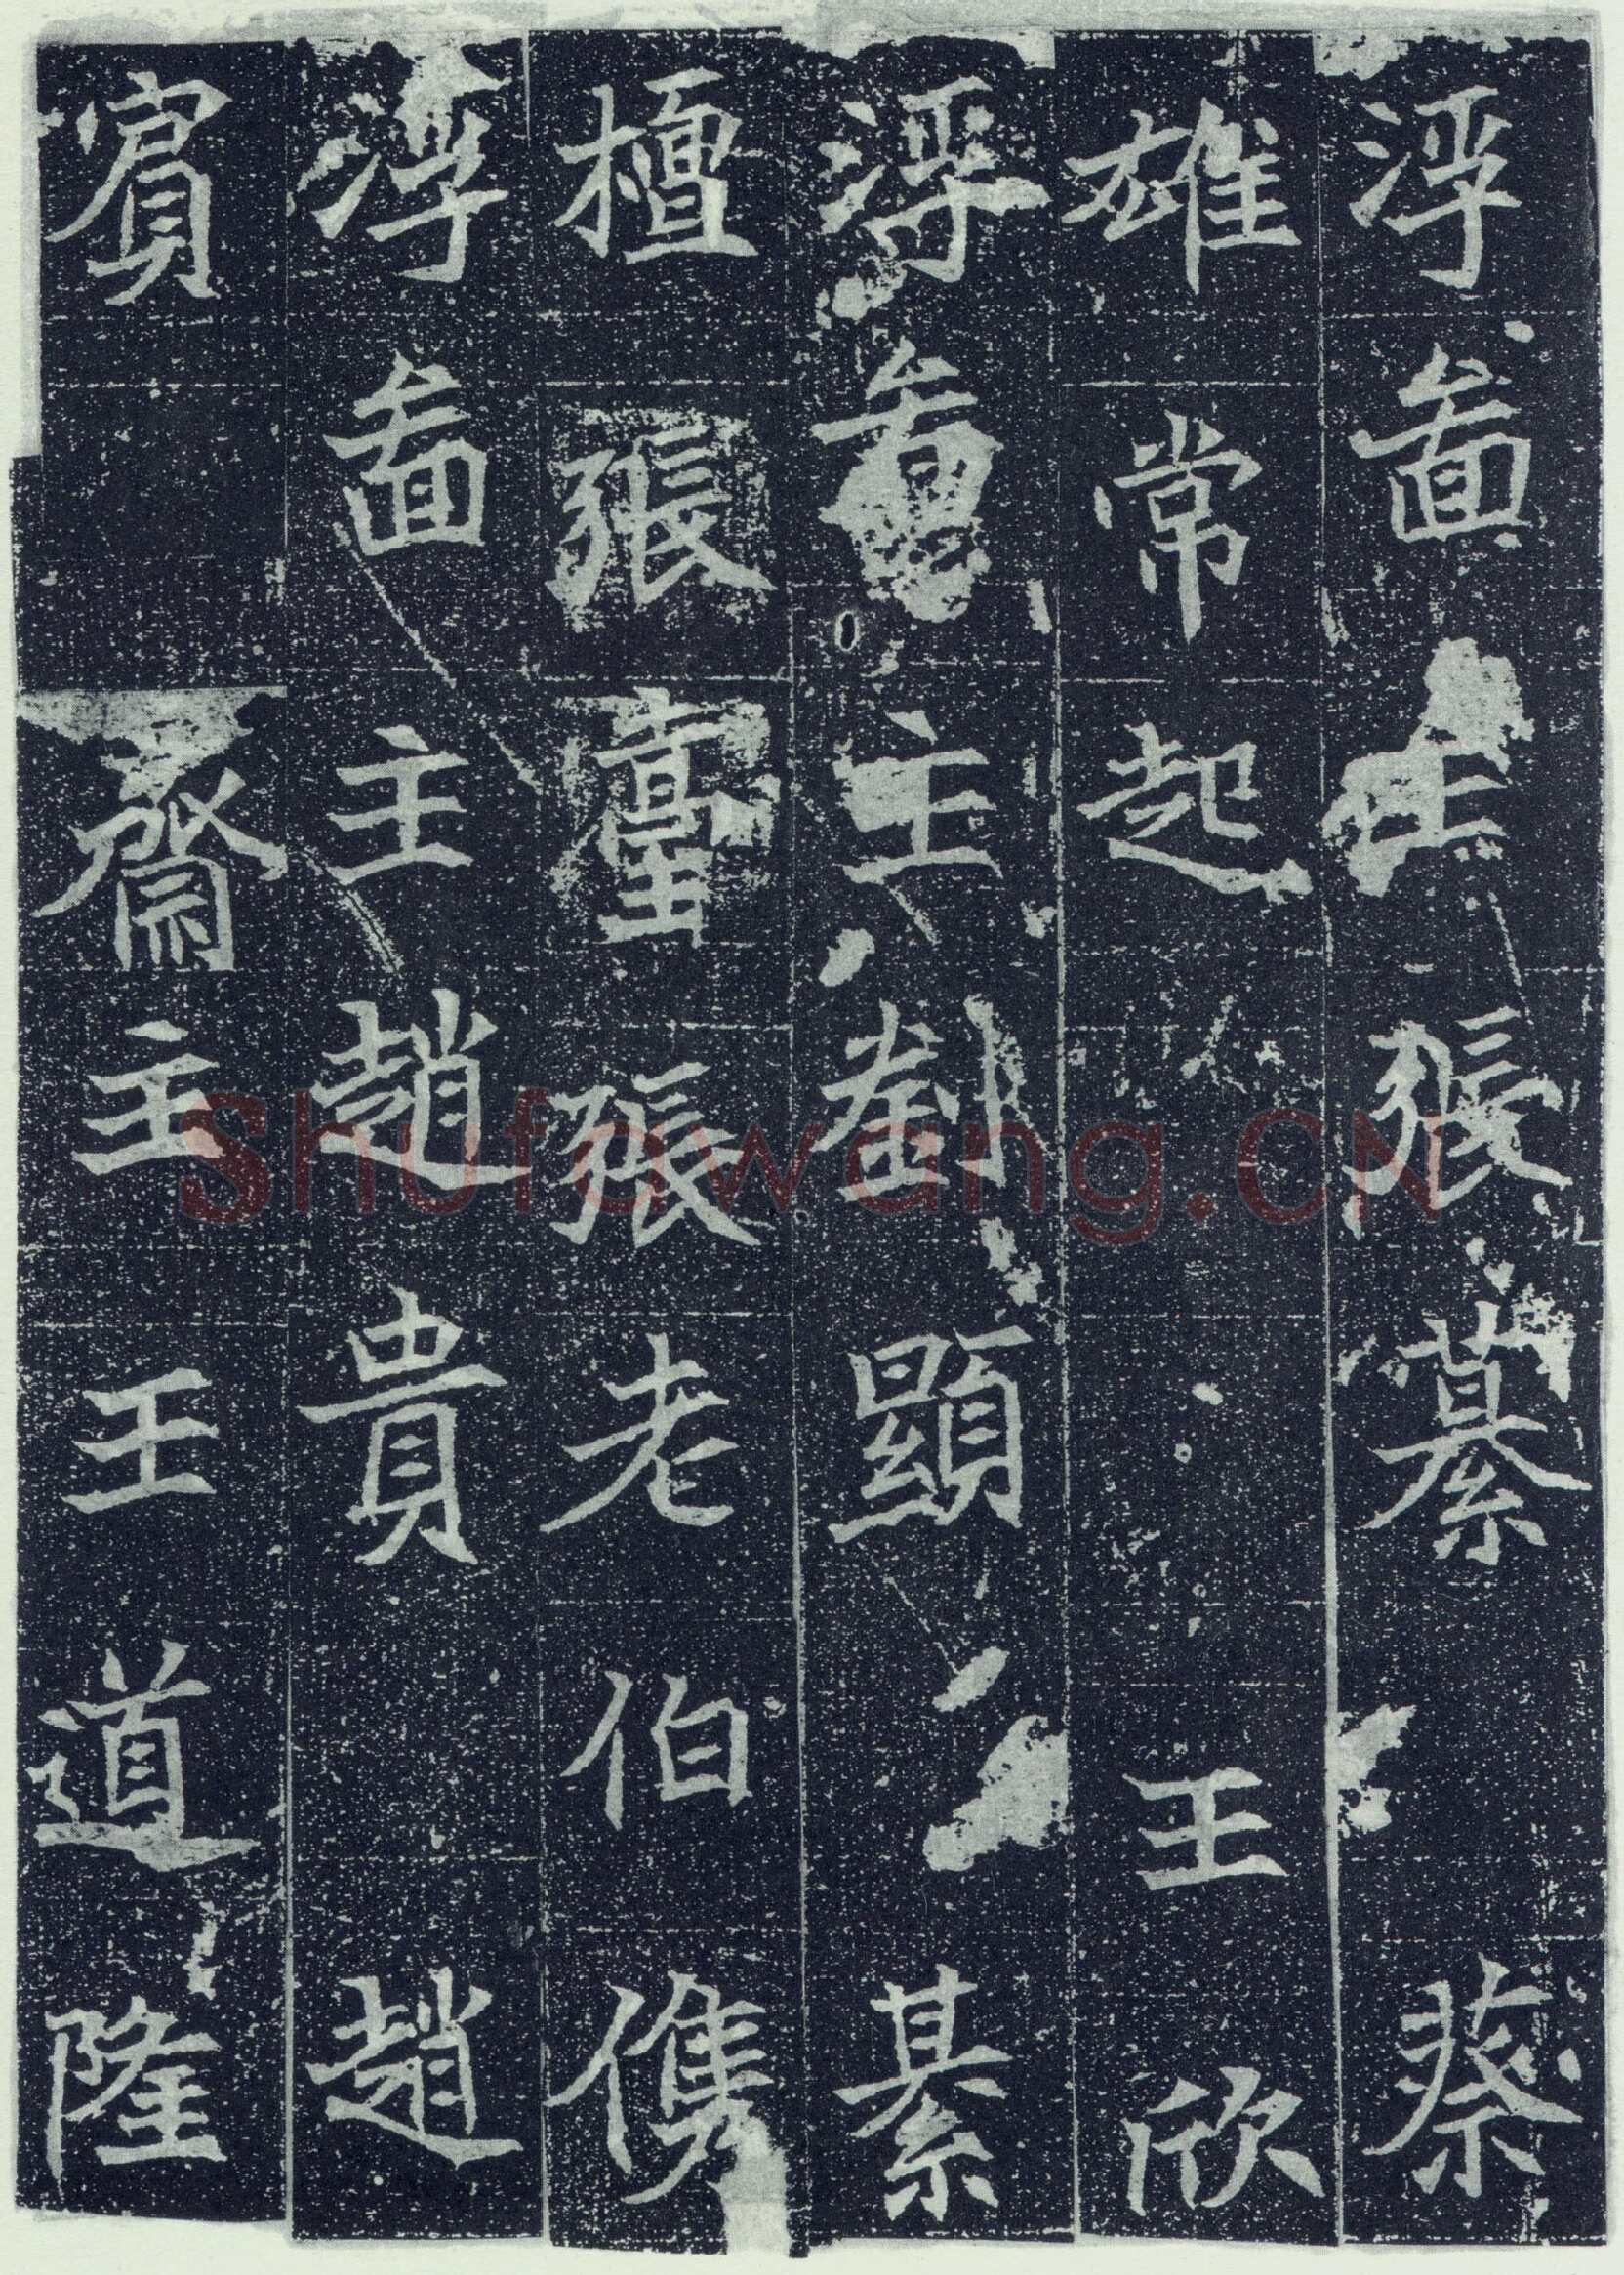 浮啚主張纂 蔡
雄常起 王欣
浮啚主劉顯 綦
檀張臺張老伯儁
浮啚主趙貴 趙
賓 齋主王道隆
Shufawang.CN